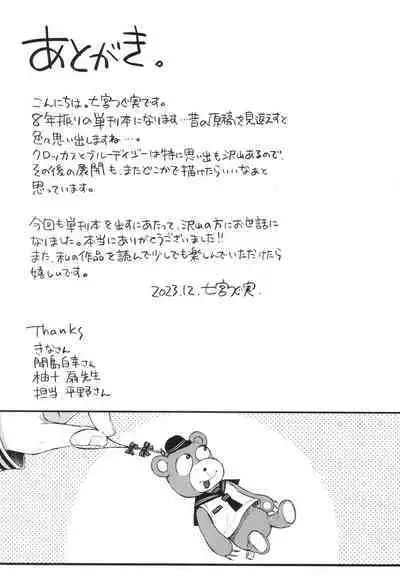 あとがき。
こんにちは。七宮つぐ実です。
8年振りの単刊本になります…昔の原稿を見返すと
色々思い出しますね…。
クロッカスとブルーデイジーは特に思い出も沢山あるので、
その後の展開も、またどこかで描けたらいいなぁと
思っています。
今回も単刊本を出すにあたって、沢山の方にお世話に
なりました。本当にありがとうございました!!
また、私の作品を読んで少しでも楽しんでいただけたら
嬉しいです。
2023.12. 七宮つぐ実.
Thanks
きなさん
関島白幸さん
柚十扇先生
担当 平野さん